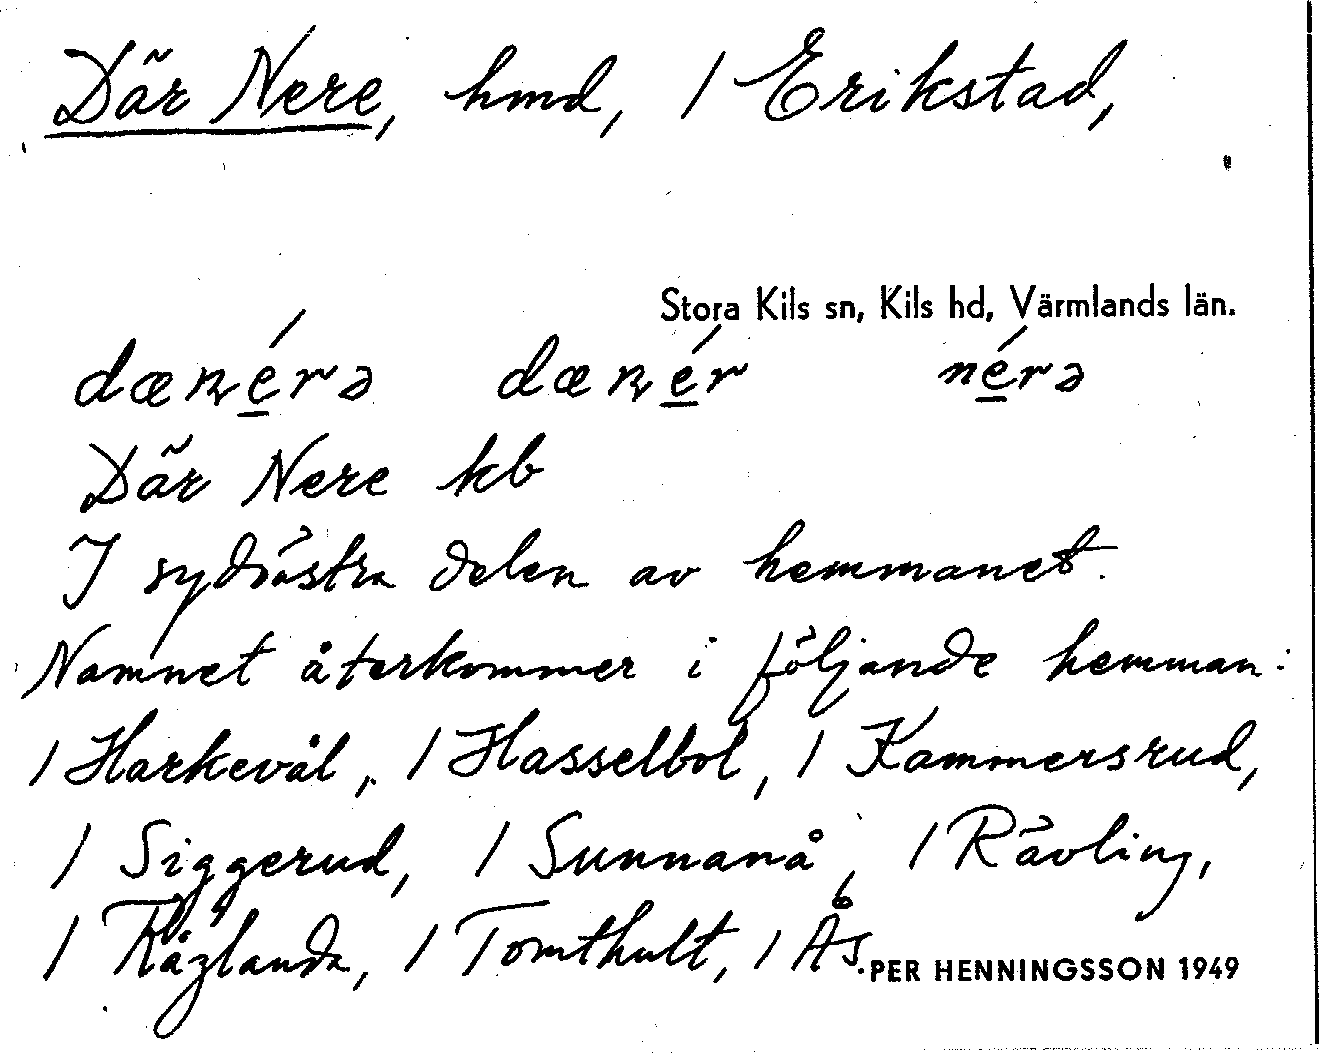 Där Nere, hmd, / Erikstad,
Stora Kils sn, Kils hd, Värmlands län.
dænéra dænér néra
Där Nere kb
I sydöstra delen av hemmanet.
Namnet återkommer i följande hemman:
/ Harkevål, / Hasselbol, / Kammersrud,
/ Siggerud, / Sunnanå, / Rävling,
/ Råglanda, / Tomthult, / Ås.
PER HENNINGSSON 1949